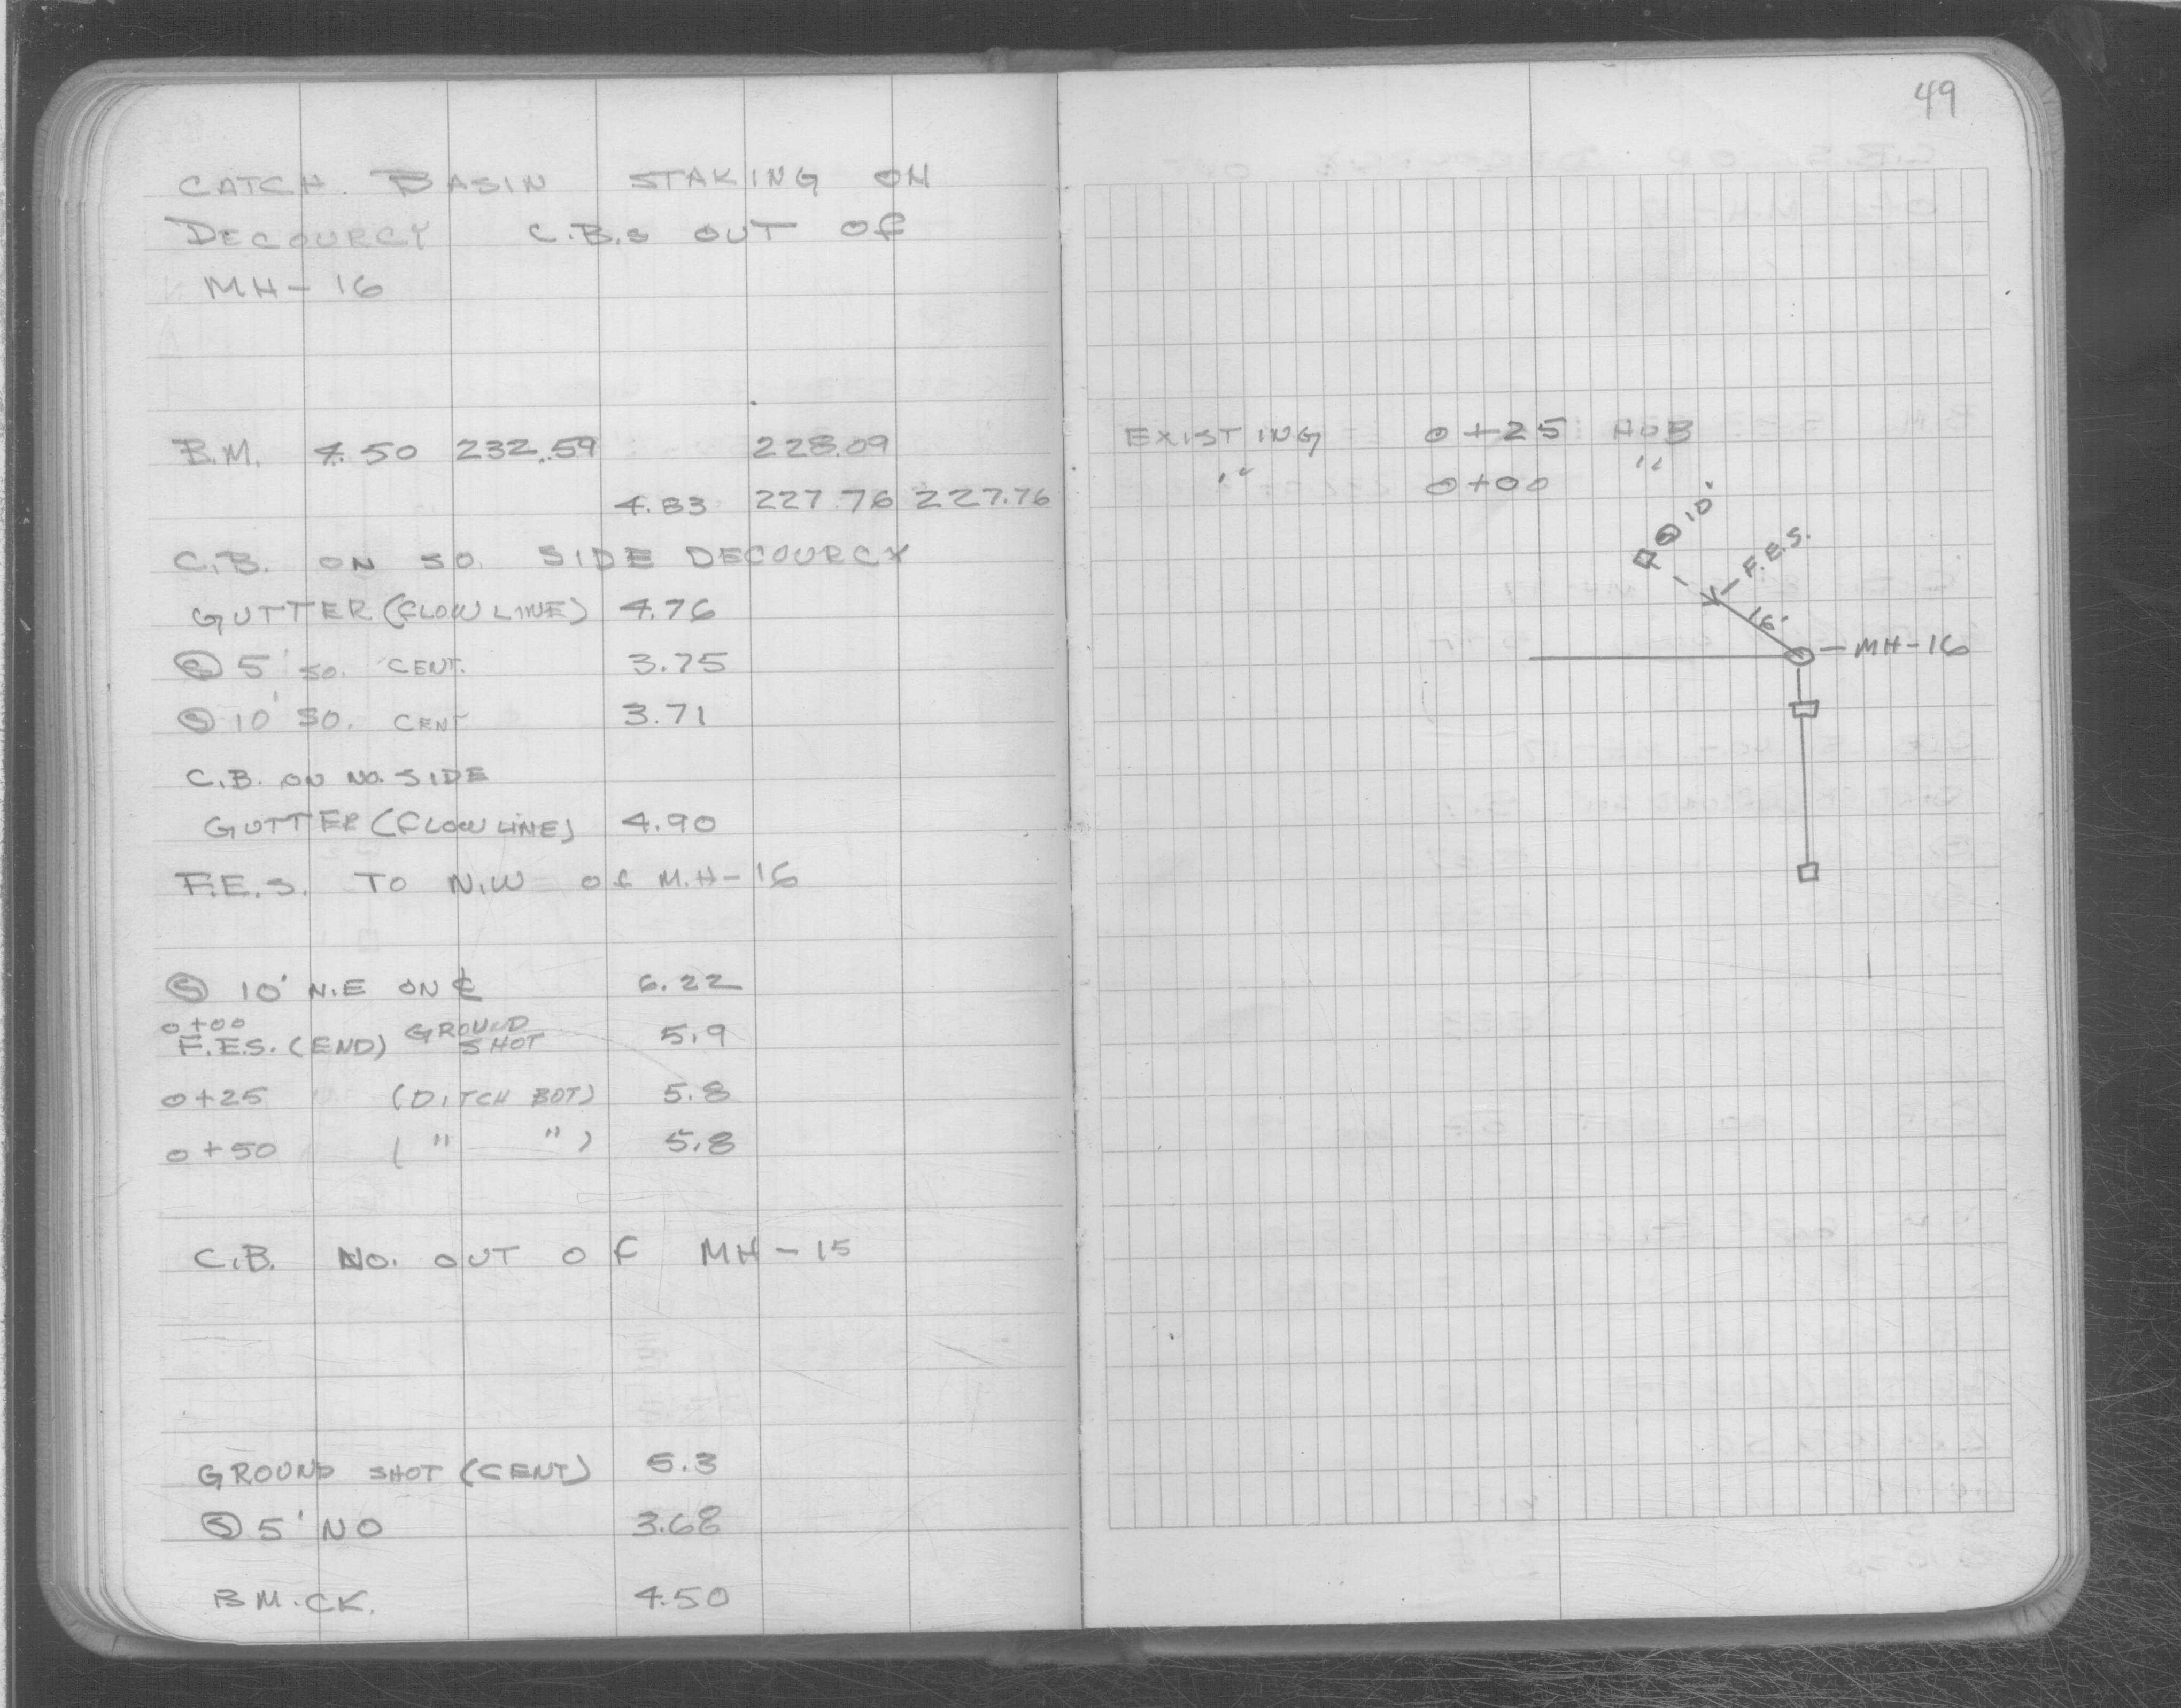 49
CATCH BASIN STAKING ON
DECOURCY C.B.s OUT OF
MH-16
B.M. 4.50 232.59 228.09
4.83 227.76 227.76
C.B. ON SO. SIDE DECOURCY
GUTTER (FLOW LINE) 4.76
Ⓢ 5' SO. CENT. 3.75
Ⓢ 10' SO. CENT 3.71
C.B. ON NO. SIDE
GUTTER (FLOW LINE) 4.90
F.E.S. TO N.W OF M.H-16
Ⓢ 10' N.E ON ℄ 6.22
0+00
F.E.S. (END) GROUND SHOT 5.9
0+25 (DITCH BOT) 5.8
0+50 ( " " ) 5.8
C.B. NO. OUT OF MH-15
GROUND SHOT (CENT) 5.3
Ⓢ 5' NO 3.68
B M. CK. 4.50
EXISTING 0+25 HUB
" 0+00 "
Ⓢ 10'
F.E.S.
16'
MH-16